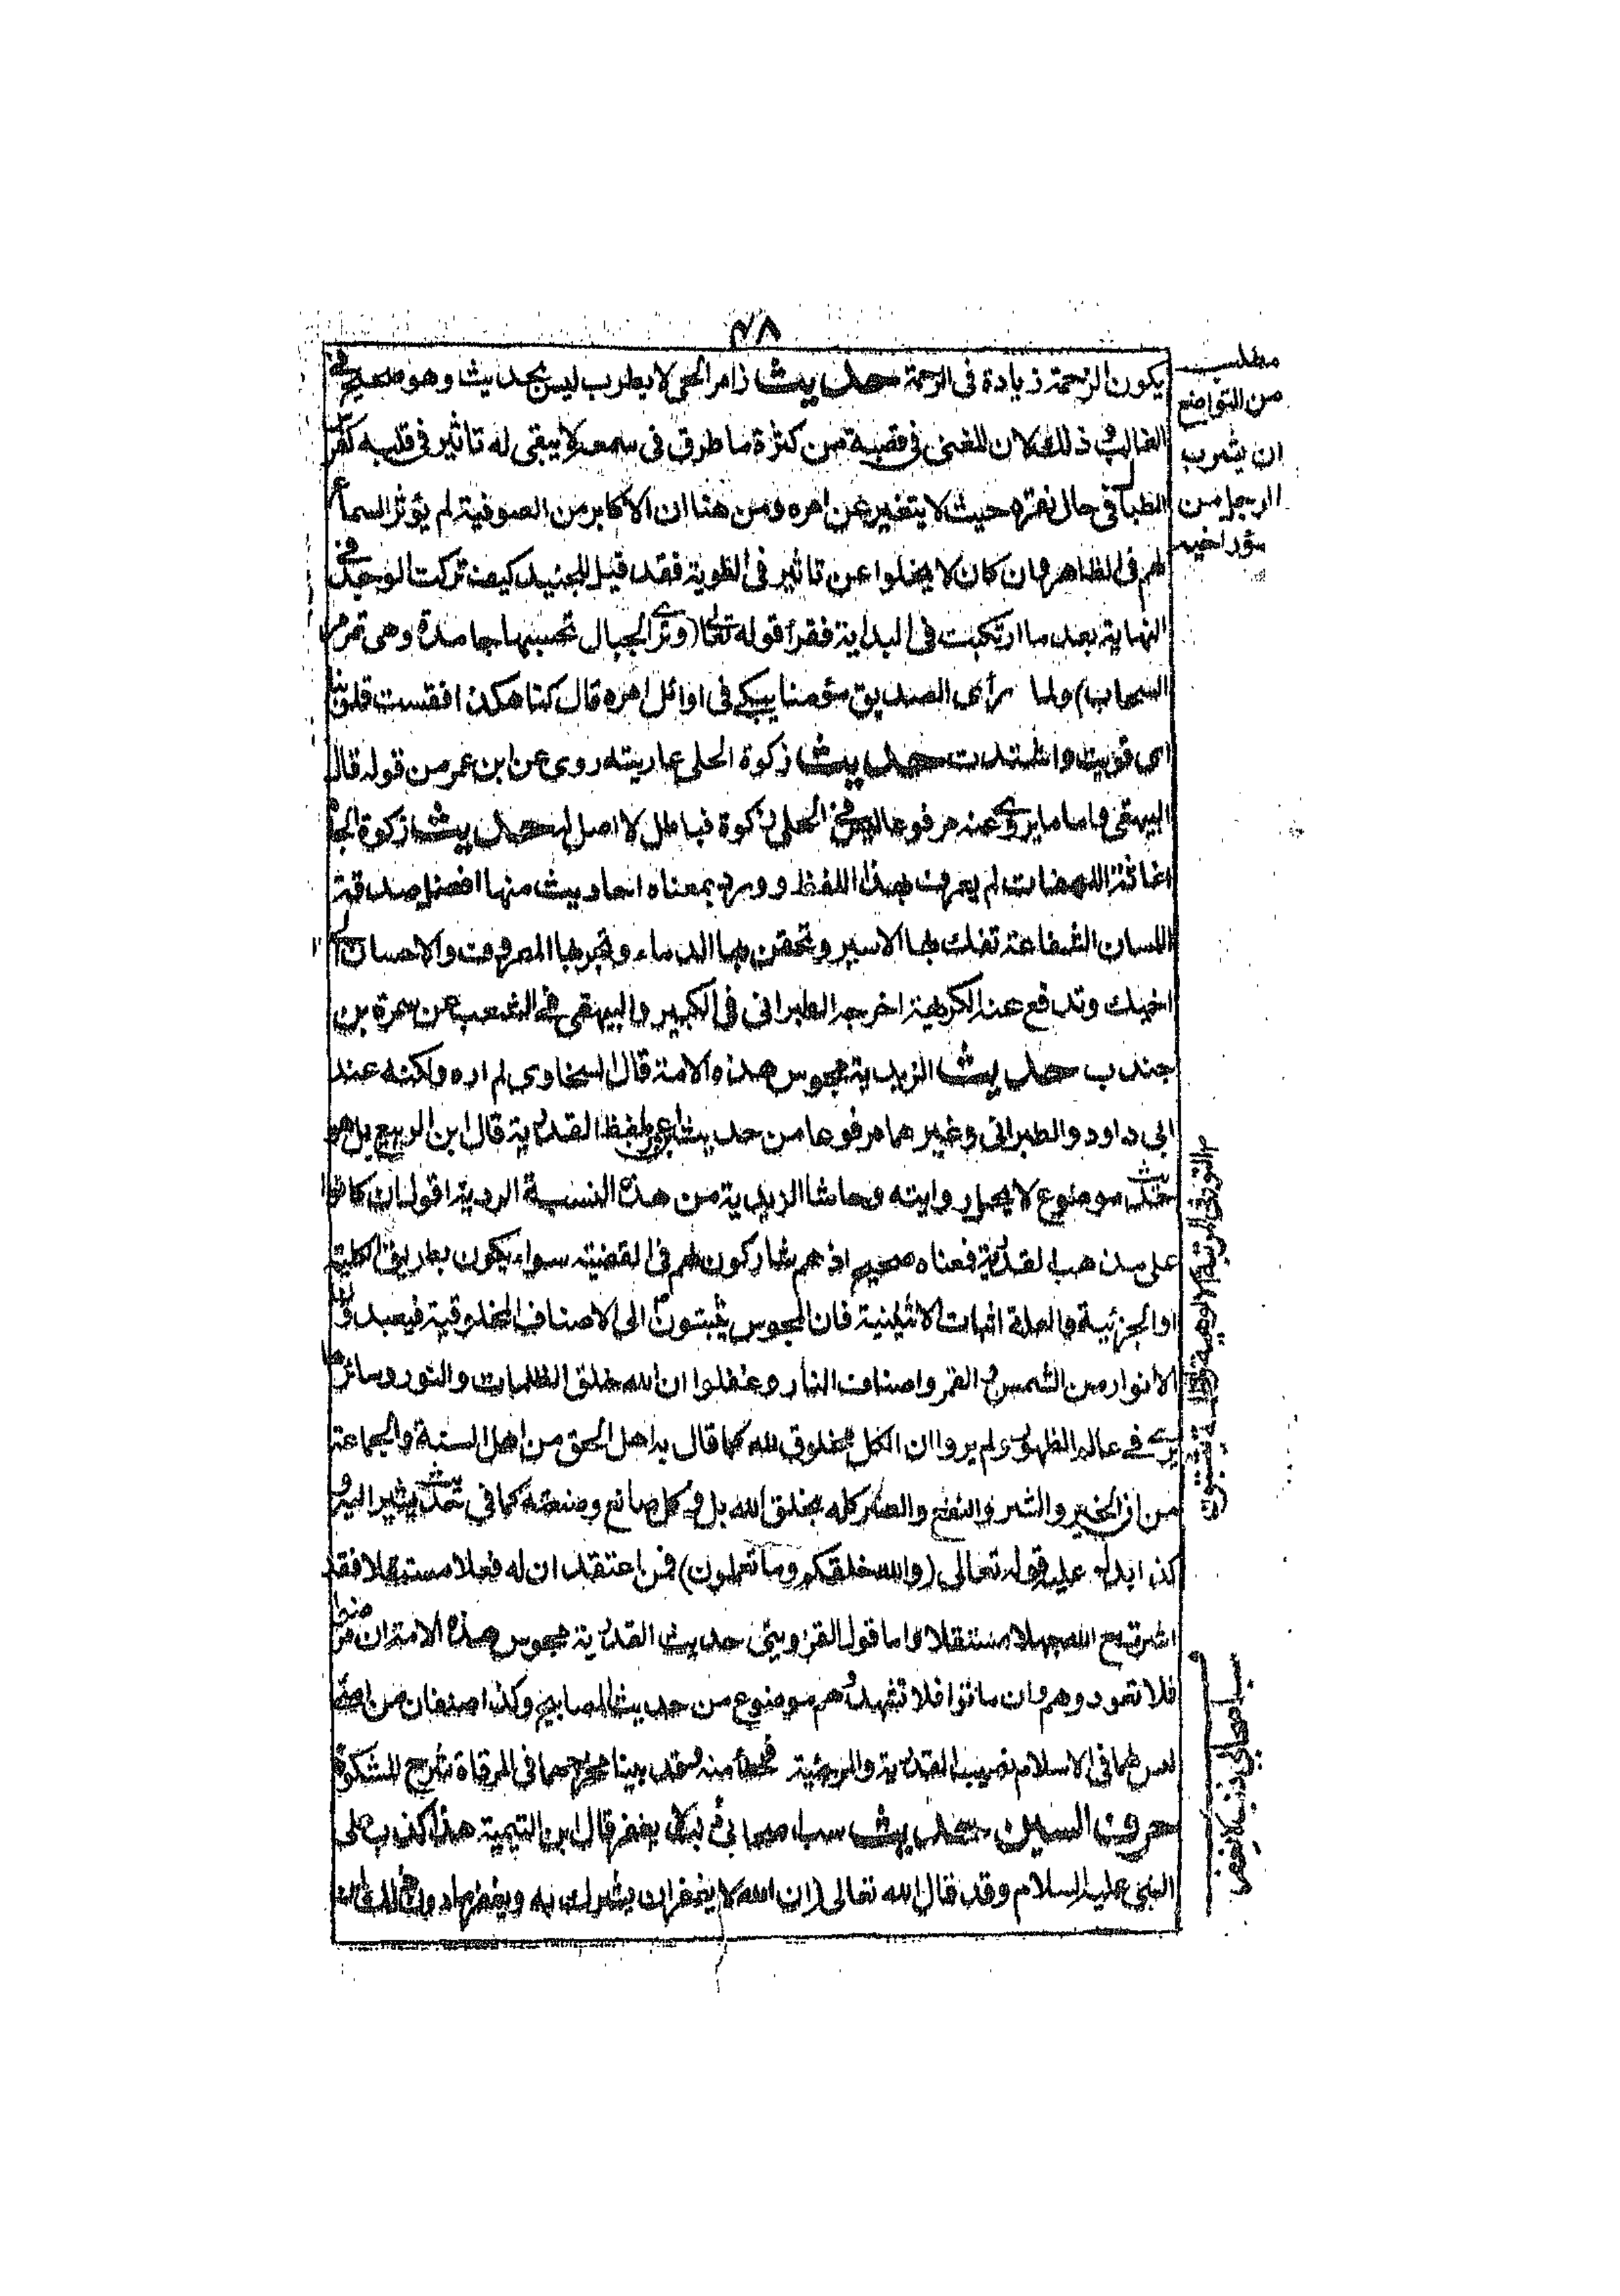 ٤٨
يكون الزحمة زيادة فى الرحمة حديث زامر الحى لا يطرب ليس بحديث وهو صحيح فى
الغالب و ذلك لان المغنى فى قصبة من كثرة ما طرق فى سمعه لا يبقى له تاثير فى قلبه كقر
الطبا فى حال نقره حيث لا يتغير عن امره ومن هنا ان الاكابر من الصوفية لم يؤثر السماع
لهم فى الظاهر وان كان لا يخلوا عن تاثير فى الطوية فقد قيل للجنيد كيف تركت الوجد فى
النهاية بعد ما ارتكبت فى البداية فقرأ قوله تعالى (وترى الجبال تحسبها جامدة وهى تمر مر
السحاب) ولما رأى الصديق مؤمنا يبكى فى اوائل امره قال كنا هكذا فقست قلوبنا
اى قويت واشتدت حديث زكوة الحلى عاريته روى عن ابن عمر من قوله قال
البيهقى واما ما يروى عنه مرفوعا ليس فى الحلى زكوة فباطل لا اصل له حديث زكوة الجاه
اغاثة اللهفات لم يعرف بهذا اللفظ وورد بمعناه احاديث منها افضل صدقة
اللسان الشفاعة تفك بها الاسير وتحقن بها الدماء وتجر بها المعروف والاحسان الى
اخيك وتدفع عنه الكريهة اخرجه الطبرانى فى الكبير والبيهقى فى الشعب عن سمرة بن
جندب حديث الزيدية مجوس هذه الامة قال السخاوى لم اره ولكنه عند
ابى داود والطبرانى وغيرهما مرفوعا من حديث ابن عمر بلفظ القدرية قال ابن الربيع بل هو
حديث موضوع لا يحل روايته وحاشا الزيدية من هذه النسبة الردية اقول ان كانوا
على مذهب القدرية فمعناه صحيح اذ هم مشاركون لهم فى القضية سواء يكون بطريق الكلية
او الجزئية والعلة اثبات الاثنينية فان المجوس يثبتون الى الاصناف المخلوقية فيعبدون
الانوار من الشمس و القمر واصناف النار وغفلوا ان الله خلق الظلمات والنور وسائر ما
يرى فى عالم الظهور ولم يروا ان الكل مخلوق لله كما قال به اهل الحق من اهل السنة والجماعة
من ان الخير والشر والنفع والضر كله بخلق الله بل و كل صانع وصنعته كما فى حديث يشير اليه و
كذا يدل عليه قوله تعالى (والله خلقكم وما تعملون) فمن اعتقد ان له فعلا مستقلا فقد
اشرك مع الله جهلا مستقلا واما قول القزوينى حديث القدرية مجوس هذه الامة ان مرضوا
فلا تعودوهم وان ماتوا فلا تشهدوهم موضوع من حديث المصابيح وكذا صنفان من امتى
ليس لهما فى الاسلام نصيب القدرية والمرجئية فخطأ منه وقد بينا مخرجهما فى المرقاة شرح المشكوة
حرف السين حديث سب اصحابى ذنب لا يغفر قال ابن التيمية هذا كذب على
النبى عليه السلام وقد قال الله تعالى (ان الله لا يغفر ان يشرك به ويغفر ما دون ذلك
مطلب
من التواضع
ان يشرب
الرجل من
سؤر اخيه
سب اصحابى ذنب لا يغفر